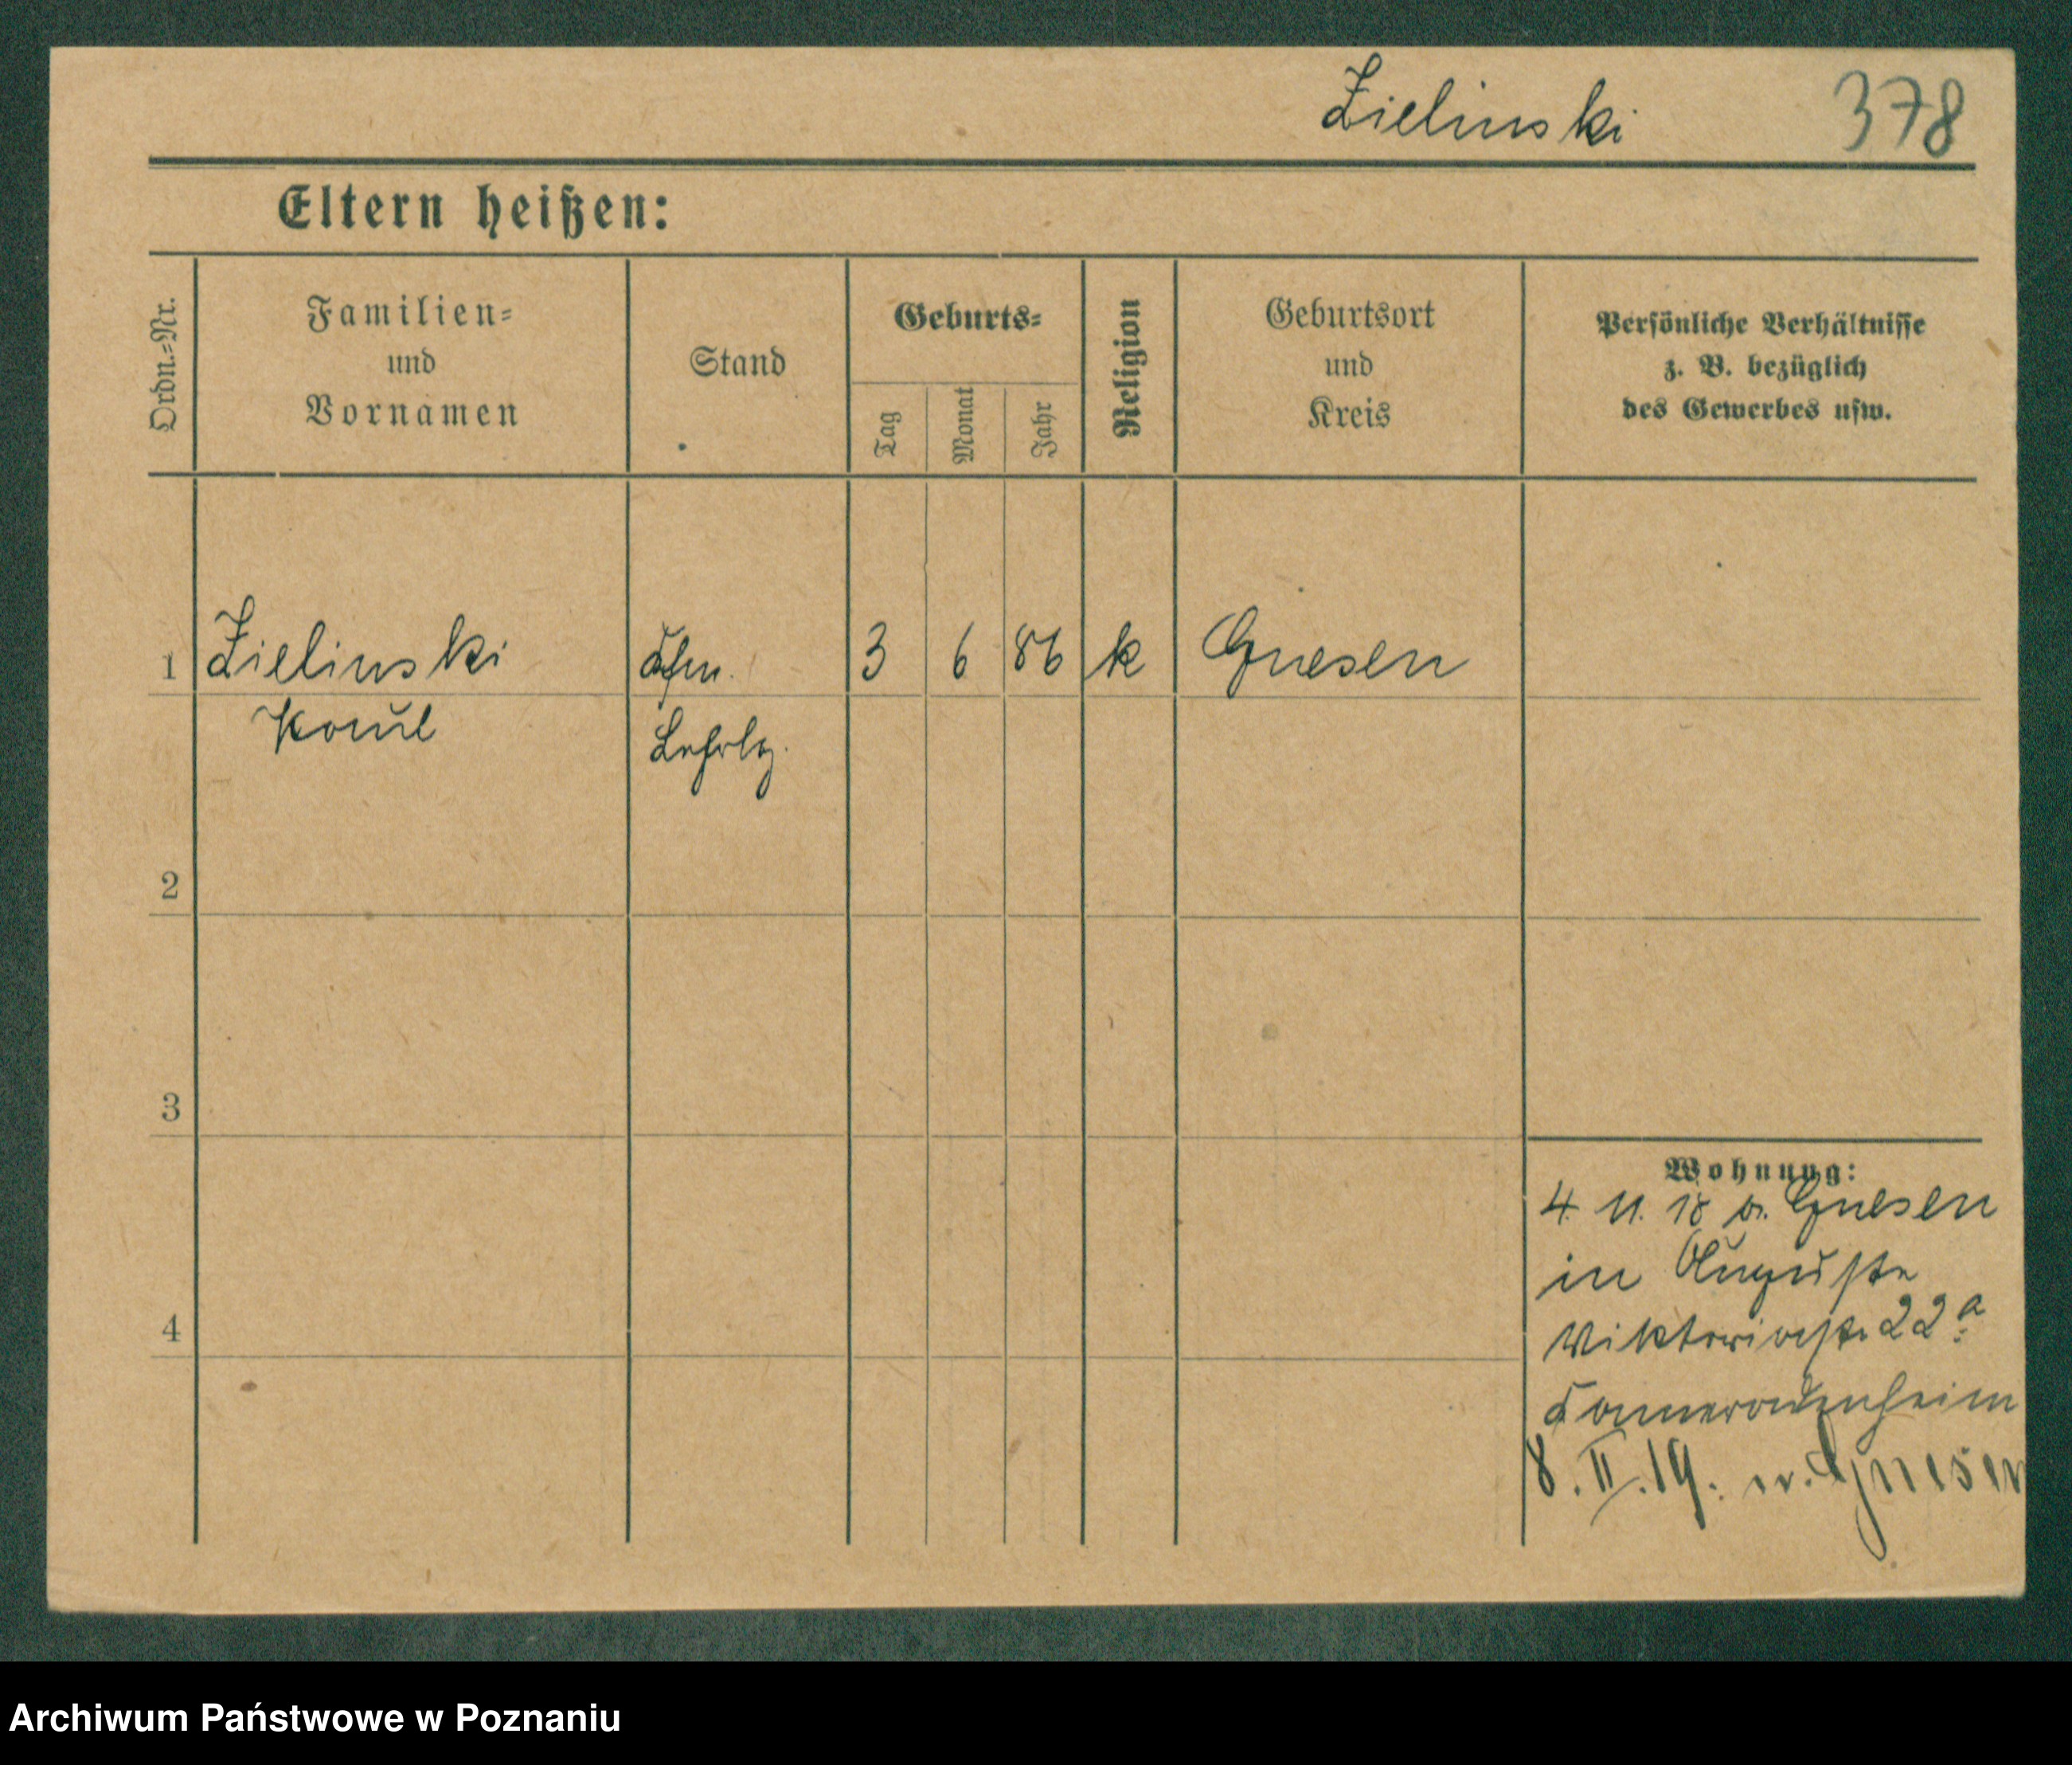 Zielinski 378
Eltern heißen:
Ordn.=Nr.
Familien=
und
Vornamen
Stand
Geburts=
Tag
Monat
Jahr
Religion
Geburtsort
und
Kreis
Persönliche Verhältnisse
z. B. bezüglich
des Gewerbes usw.
1 Zielinski 3 6 86 k Gnesen
Lehrlg.
2
3
4
Wohnung:
4. 11. 18 v. Gnesen
in Auguste
Viktoriastr 22a
8. II. 19. n. Gnesen
Archiwum Państwowe w Poznaniu